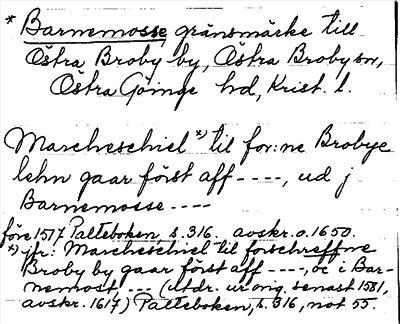 * Barnemosse, gränsmärke till
Östra Broby by, Östra Broby sn,
Östra Göinge hd, Krist. l.
Marcheschiel *) til for:ne Brobye
lehn gaar först aff ----, ud j
Barnemosse ----
före 1517 Palteboken, s. 316. avskr. o. 1650.
*) jfr: Marcheschiel til forschreffne
Broby by gaar först aff ----, oc i Bar-
nemost --- (utdr. ur orig. senast 1581,
avskr. 1617) Palteboken, s. 316, not 55.